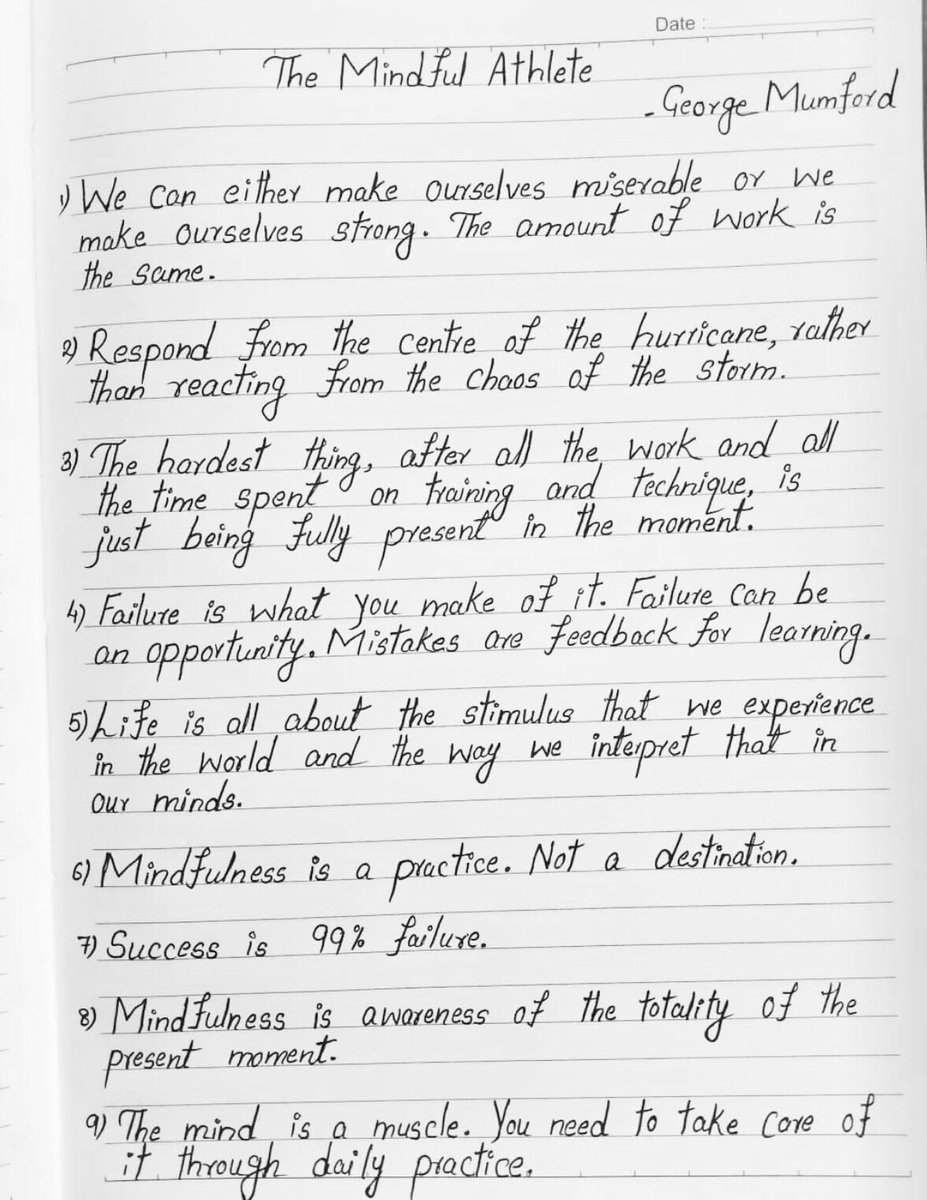 Date :
The Mindful Athlete
- George Mumford
1) We can either make ourselves miserable or we
make ourselves strong. The amount of work is
the same.
2) Respond from the centre of the hurricane, rather
than reacting from the chaos of the storm.
3) The hardest thing, after all the work and all
the time spent on training and technique, is
just being fully present in the moment.
4) Failure is what you make of it. Failure can be
an opportunity. Mistakes are feedback for learning.
5) Life is all about the stimulus that we experience
in the world and the way we interpret that in
our minds.
6) Mindfulness is a practice. Not a destination.
7) Success is 99% failure.
8) Mindfulness is awareness of the totality of the
present moment.
9) The mind is a muscle. You need to take care of
it through daily practice.